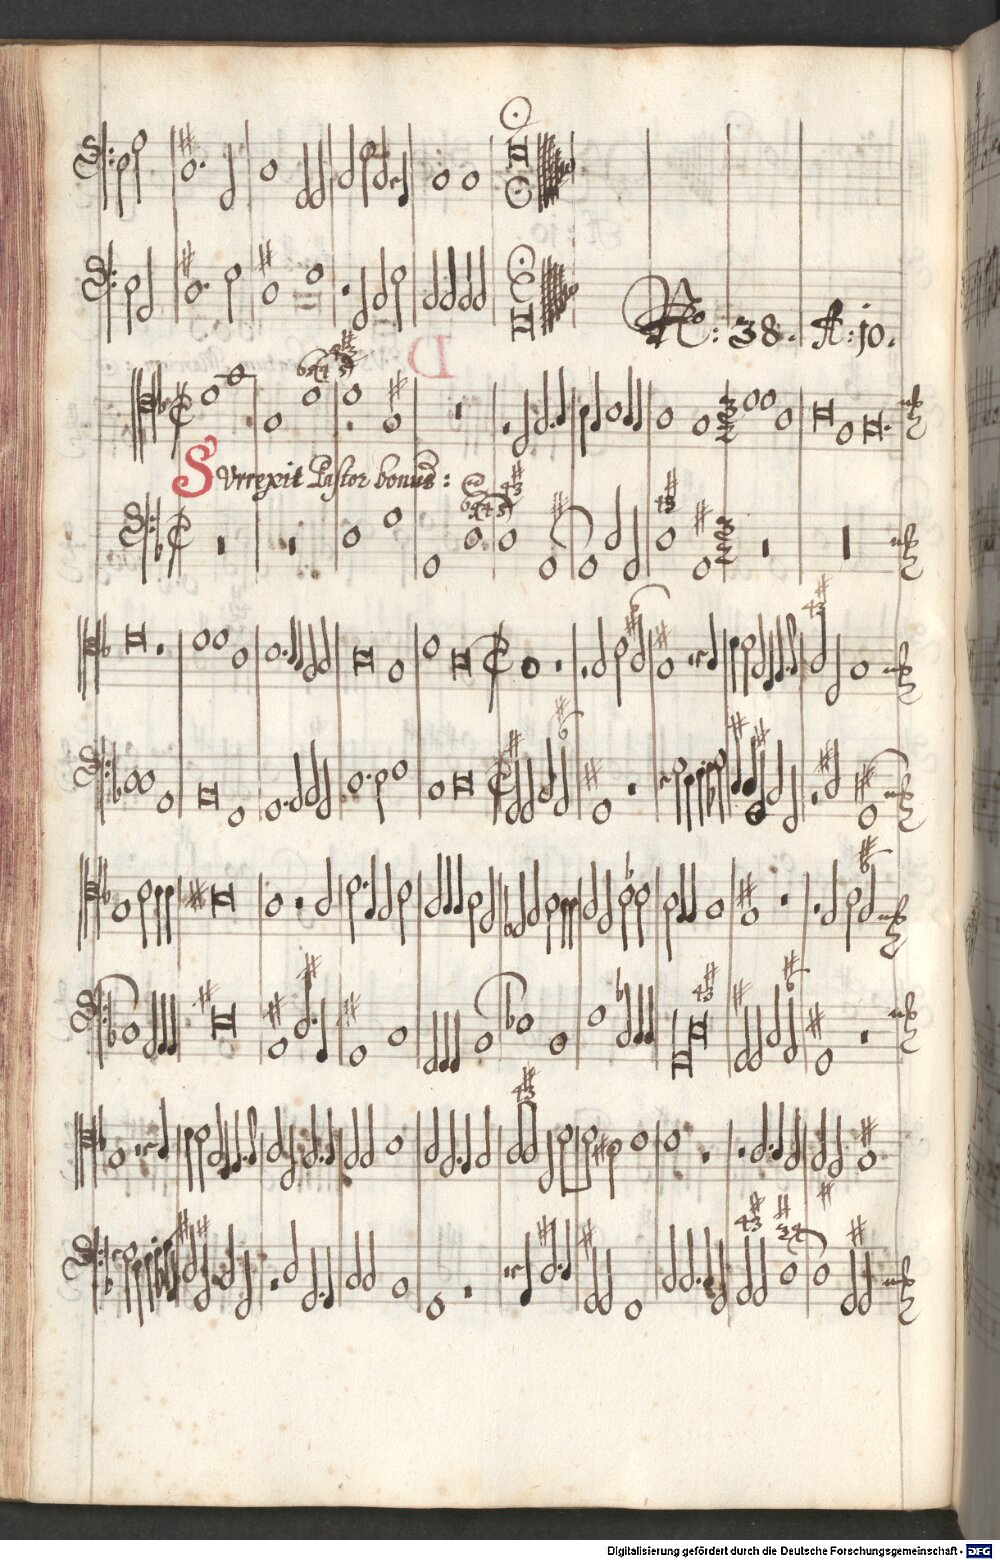 No: 38. A: 10.
Surrexit Pastor bonus:
Digitalisierung gefördert durch die Deutsche Forschungsgemeinschaft - DFG